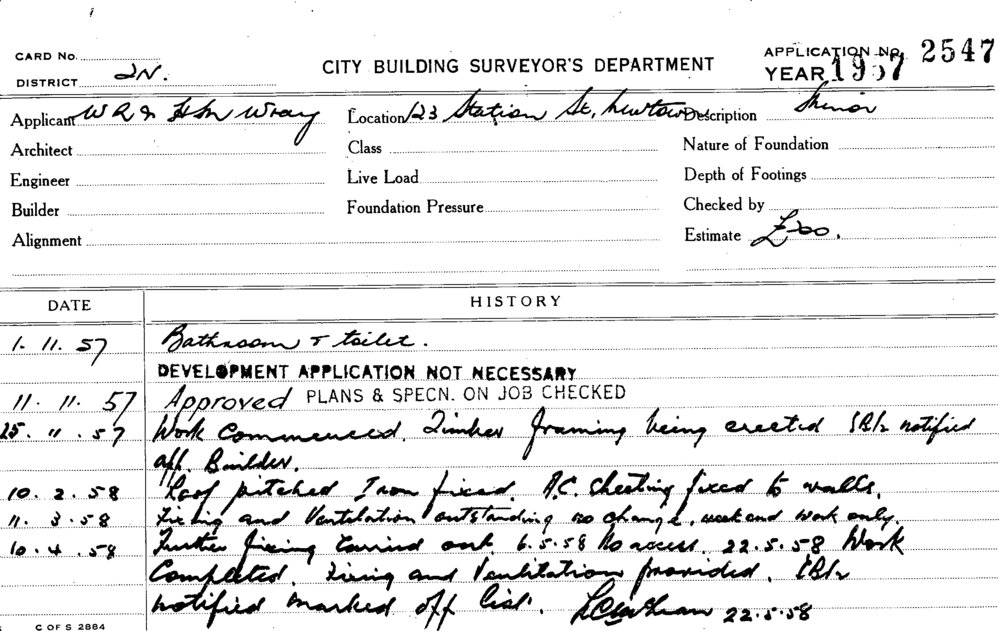 CARD No.
DISTRICT 2N.
CITY BUILDING SURVEYOR'S DEPARTMENT
APPLICATION No. 2547
YEAR 1957
Applicant W R & H M Wray Location 123 Station St, Newtown Description Minor
Architect Class Nature of Foundation
Engineer Live Load Depth of Footings
Builder Foundation Pressure Checked by
Alignment Estimate
DATE HISTORY
1. 11. 57 Bathroom & toilet.
DEVELOPMENT APPLICATION NOT NECESSARY
11. 11. 57 Approved PLANS & SPECN. ON JOB CHECKED
25. 11. 57 Work Commenced. Timber framing being erected notified
Builder.
10. 2. 58 Roof pitched Iron fixed. A.C. Sheeting fixed to walls.
11. 3. 58 Fixing and Ventilation outstanding no change, weekend work only.
10. 4. 58 Further fixing carried out. 6.5.58 No access. 22.5.58 Work
Completed. Fixing and Ventilation provided.
notified marked off list. 22.5.58
C OF S 2884